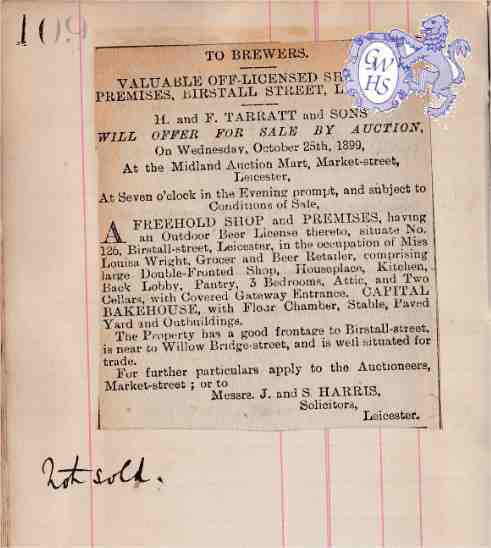 109
TO BREWERS.
VALUABLE OFF-LICENSED
PREMISES, BIRSTALL STREET,
H. and F. TARRATT and SONS
WILL OFFER FOR SALE BY AUCTION,
On Wednesday, October 25th, 1899,
At the Midland Auction Mart, Market-street,
Leicester,
At Seven o'clock in the Evening prompt, and subject to
Conditions of Sale,
A FREEHOLD SHOP and PREMISES, having
an Outdoor Beer License thereto, situate No.
126, Birstall-street, Leicester, in the occupation of Miss
Louisa Wright, Grocer and Beer Retailer, comprising
large Double-Fronted Shop, Houseplace, Kitchen,
Back Lobby, Pantry, 3 Bedrooms, Attic, and Two
Cellars, with Covered Gateway Entrance. CAPITAL
BAKEHOUSE, with Flour Chamber, Stable, Paved
Yard and Outbuildings.
The Property has a good frontage to Birstall-street,
is near to Willow Bridge-street, and is well situated for
trade.
For further particulars apply to the Auctioneers,
Market-street; or to
Messrs. J. and S. HARRIS,
Solicitors,
Leicester.
Not sold.
GWHS